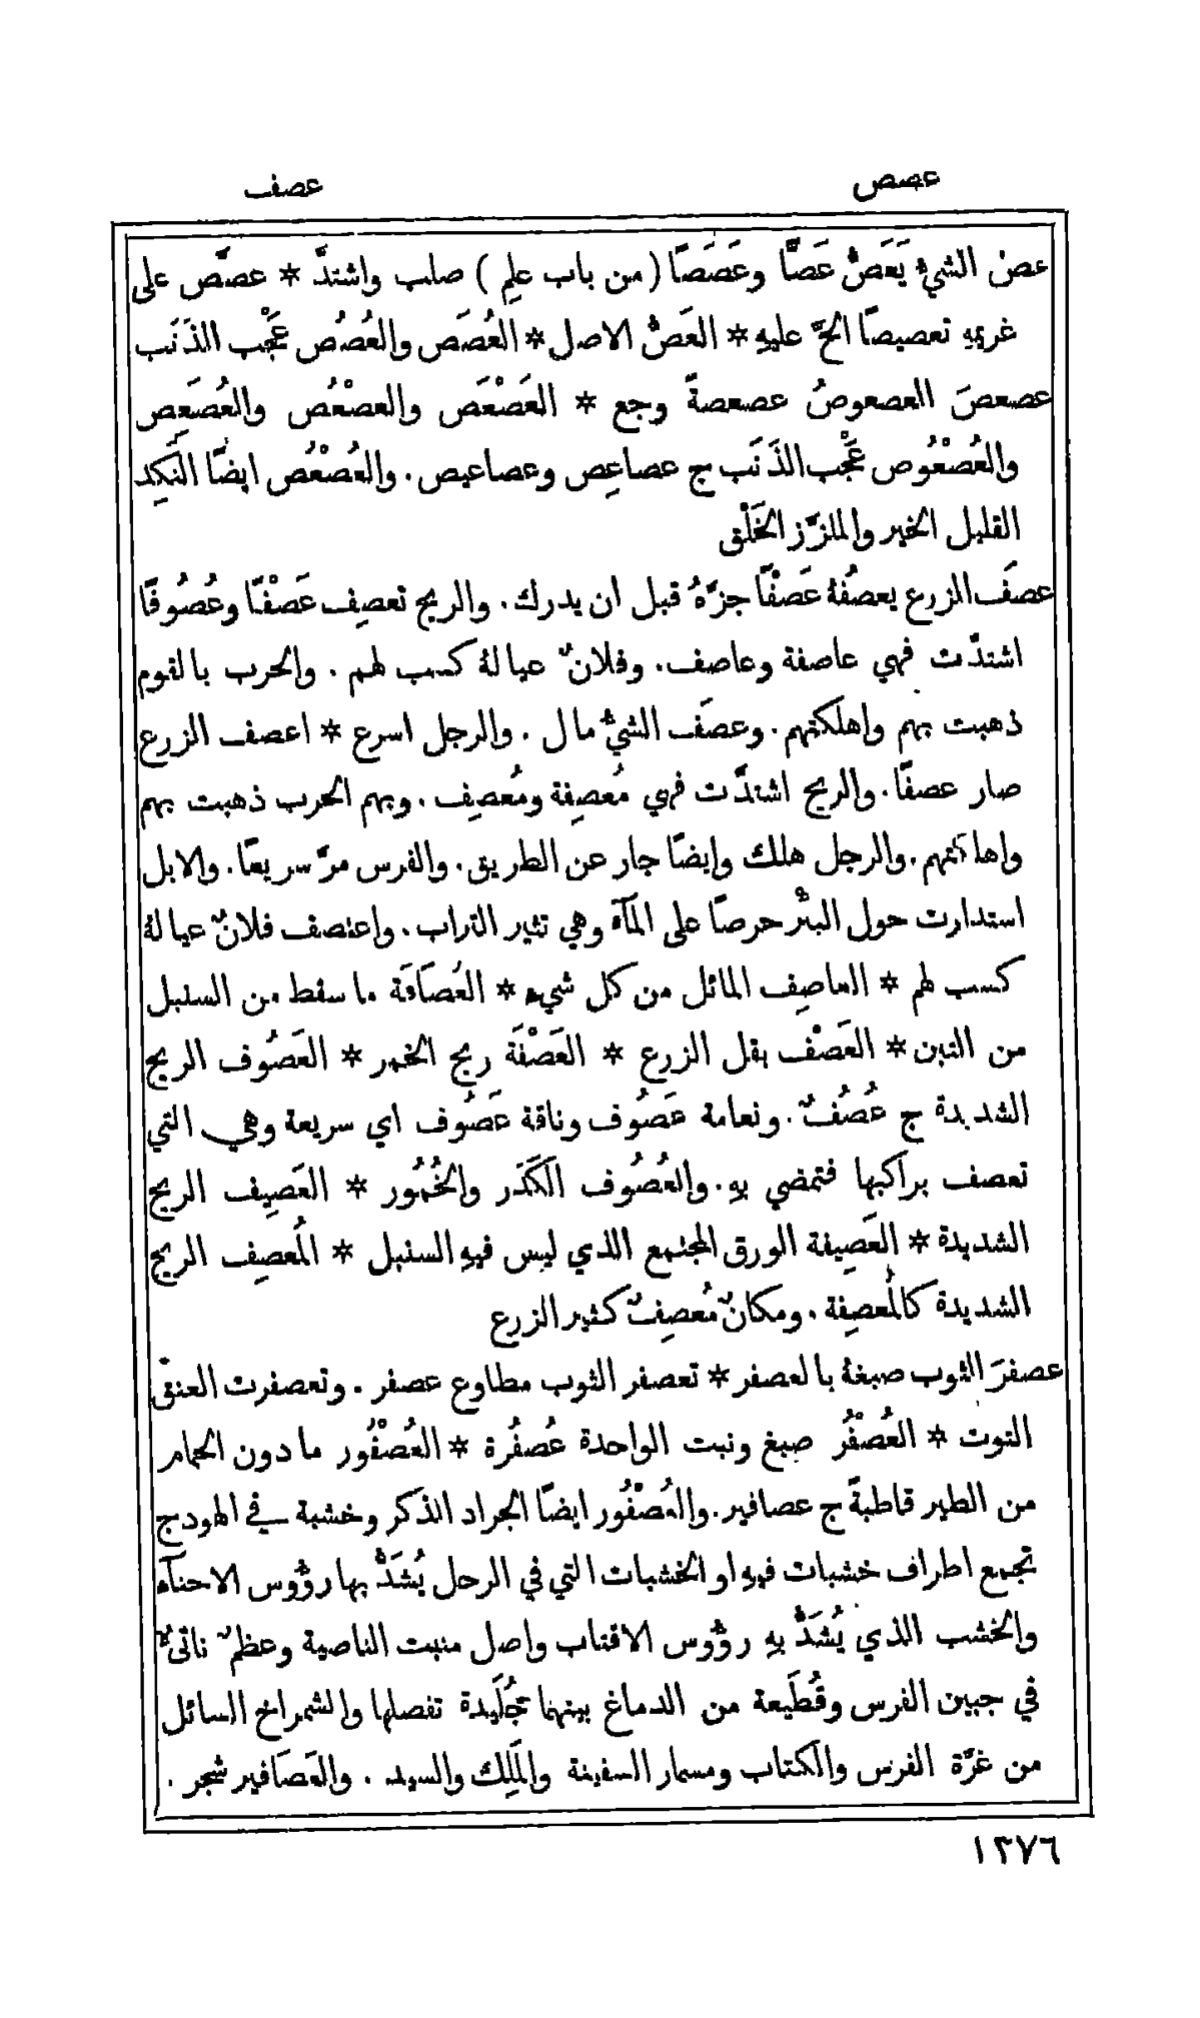 عصص
عصف
عصّ الشيءُ يَعَصُّ عَصًّا وعَصَصًا (من باب علِم) صلب واشتدَّ * عصَّص على
غريمهِ تعصيصًا الحَّ عليهِ * العَصُّ الاصل * العُصَص والعُصُص عَجْب الذَنَب
عصعصَ العصعوصُ عصعصةً وجع * العَصْعَص والعصْعُص والعُصَعِص
والعُصْعُوص عَجْب الذَنَب ج عصاعِص وعصاعيص. والعُصْعُص ايضًا النَكِد
القليل الخير والملزَّز الخَلْق
عصَف الزرع يعصُفهُ عَصْفًا جزَّهُ قبل ان يدرك. والريح تعصِف عَصْفًا وعُصُوفًا
اشتدَّت فهي عاصفة وعاصف. وفلانٌ عيالهُ كسب لهم. والحرب بالقوم
ذهبت بهم واهلكتهم. وعصَف الشيءُ مال. والرجل اسرع * اعصف الزرع
صار عصفًا. والريح اشتدَّت فهي مُعصِفة ومُعصِف. وبهم الحرب ذهبت بهم
واهلكتهم. والرجل هلك وايضًا جار عن الطريق. والفرس مرَّ سريعًا. والابل
استدارت حول البئر حرصًا على المآء وهي تثير التراب. واعتصف فلانٌ عيالهُ
كسب لهم * العاصِف المائل من كل شيء * العُصَافَة ما سقط من السنبل
من التبن * العَصْف بقل الزرع * العَصْفَة ريح الخمر * العَصُوف الريح
الشديدة ج عُصُفٌ. ونعامة عَصُوف وناقة عَصُوف اي سريعة وهي التي
تعصف براكبها فتمضي بهِ. والعُصُوف الكَدَر والخُمُور * العَصِيف الريح
الشديدة * العَصِيفة الورق المجتمع الذي ليس فيهِ السنبل * المُعصِف الريح
الشديدة كالمُعصِفة. ومكانٌ مُعصِفٌ كثير الزرع
عصفرَ الثوب صبغهُ بالعصفر * تعصفر الثوب مطاوع عصفر. وتعصفرت العنق
التوت * العُصْفُر صبغ ونبت الواحدة عُصفُرة * العُصْفُور ما دون الحمام
من الطير قاطبةً ج عصافير. والعُصْفُور ايضًا الجراد الذكر وخشبة في الهودج
تجمع اطراف خشبات فيهِ او الخشبات التي في الرحل يُشَدُّ بها رؤُوس الاحنآء
والخشب الذي يُشَدُّ بهِ رؤُوس الاقتاب واصل منبت الناصية وعظمٌ ناتئٌ
في جبين الفرس وقُطَيعة من الدماغ بينهما جُلَيدة تفصلها والشمراخ السائل
من غرَّة الفرس والكتاب ومسمار السفينة والمَلِك والسيد. والعَصَافير شجر.
١٣٧٦